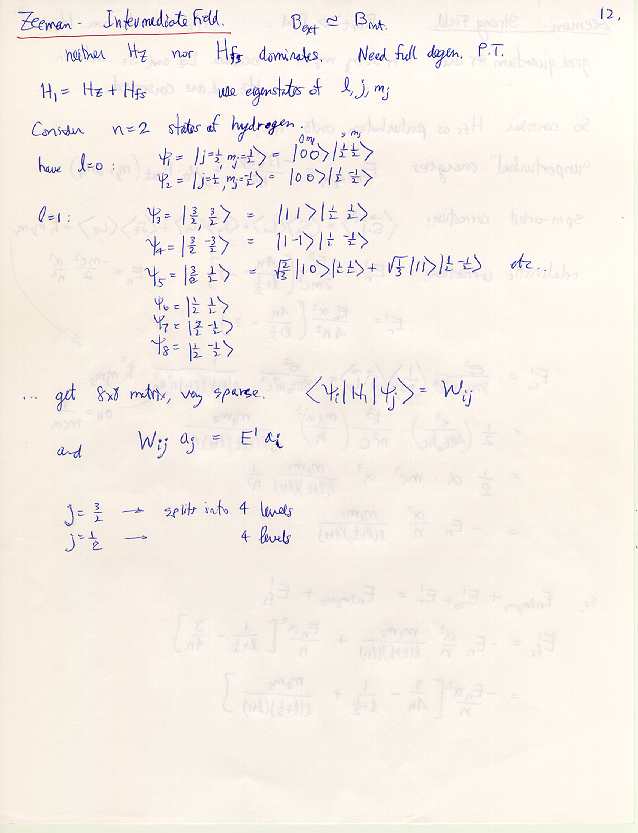 12.
Zeeman - Intermediate Field. B_ext ≃ B_int.
neither H_Z nor H_fs dominates. Need full degen. P.T.
H_1 = H_Z + H_fs use eigenstates of l, j, m_j
Consider n=2 states of hydrogen.
have l=0: ψ_1 = |j=½, m_j=½⟩ = |00⟩|½ ½⟩
ψ_2 = |j=½, m_j=-½⟩ = |00⟩|½ -½⟩
l=1: ψ_3 = |3/2, 3/2⟩ = |11⟩|½ ½⟩
ψ_4 = |3/2 -3/2⟩ = |1-1⟩|½ -½⟩
ψ_5 = |3/2 ½⟩ = √2/3 |10⟩|½ ½⟩ + √1/3 |11⟩|½ -½⟩ etc..
ψ_6 = |½ ½⟩
ψ_7 = |3/2 -½⟩
ψ_8 = |½ -½⟩
... get 8x8 matrix, very sparse. ⟨ψ_i|H_1|ψ_j⟩ = W_ij
and W_ij a_j = E' a_i
j = 3/2 → splits into 4 levels
j = ½ → 4 levels